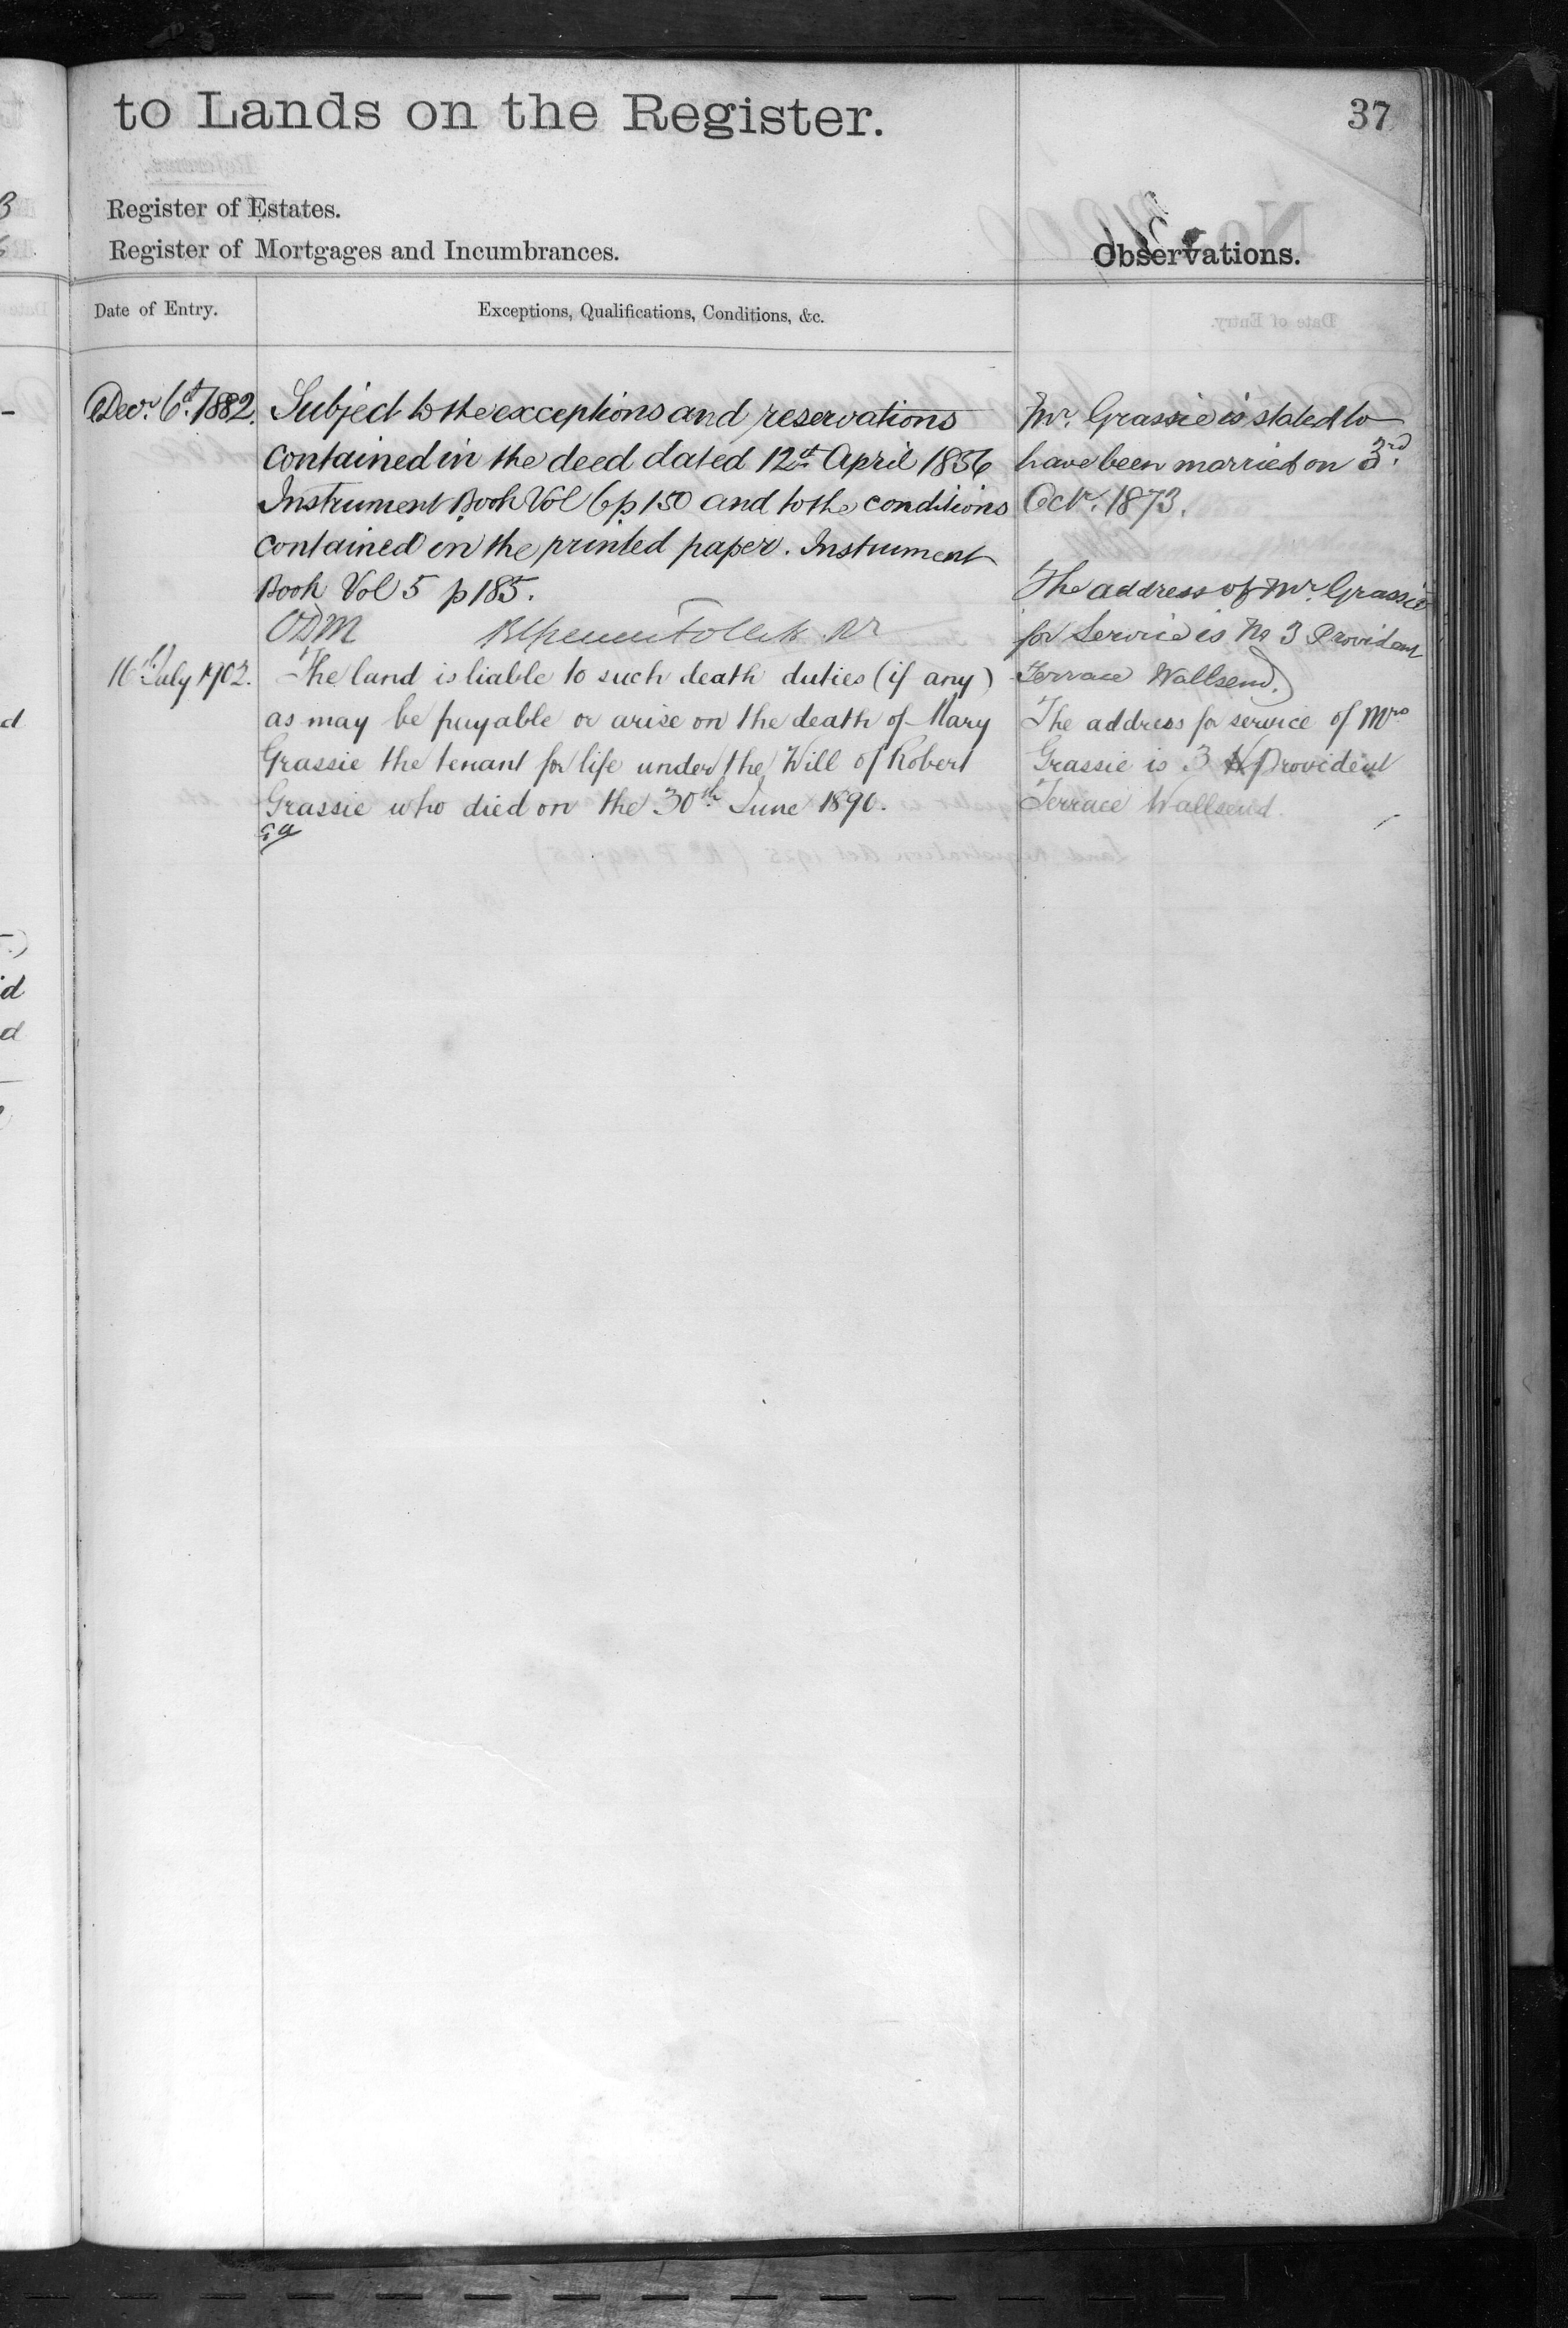 to Lands on the Register.
37
Register of Estates.
Register of Mortgages and Incumbrances.
Observations.
Date of Entry.
Exceptions, Qualifications, Conditions, &c.
Decr. 6th 1882.
Subject to the exceptions and reservations
contained in the deed dated 12th April 1856
Instrument Book Vol 6 p 150 and to the conditions
contained in the printed paper. Instrument
Book Vol 5 p 185.
ODM
16th July 1902.
The land is liable to such death duties (if any)
as may be payable or arise on the death of Mary
Grassie the tenant for life under the Will of Robert
Grassie who died on the 30th June 1890.
Mr. Grassie is stated to
have been married on 3rd.
Octr. 1873.
The address of Mr. Grassie
for Service is No 3 Provident
Terrace Wallsend.
The address for service of Mrs
Grassie is 3 Provident
Terrace Wallsend.